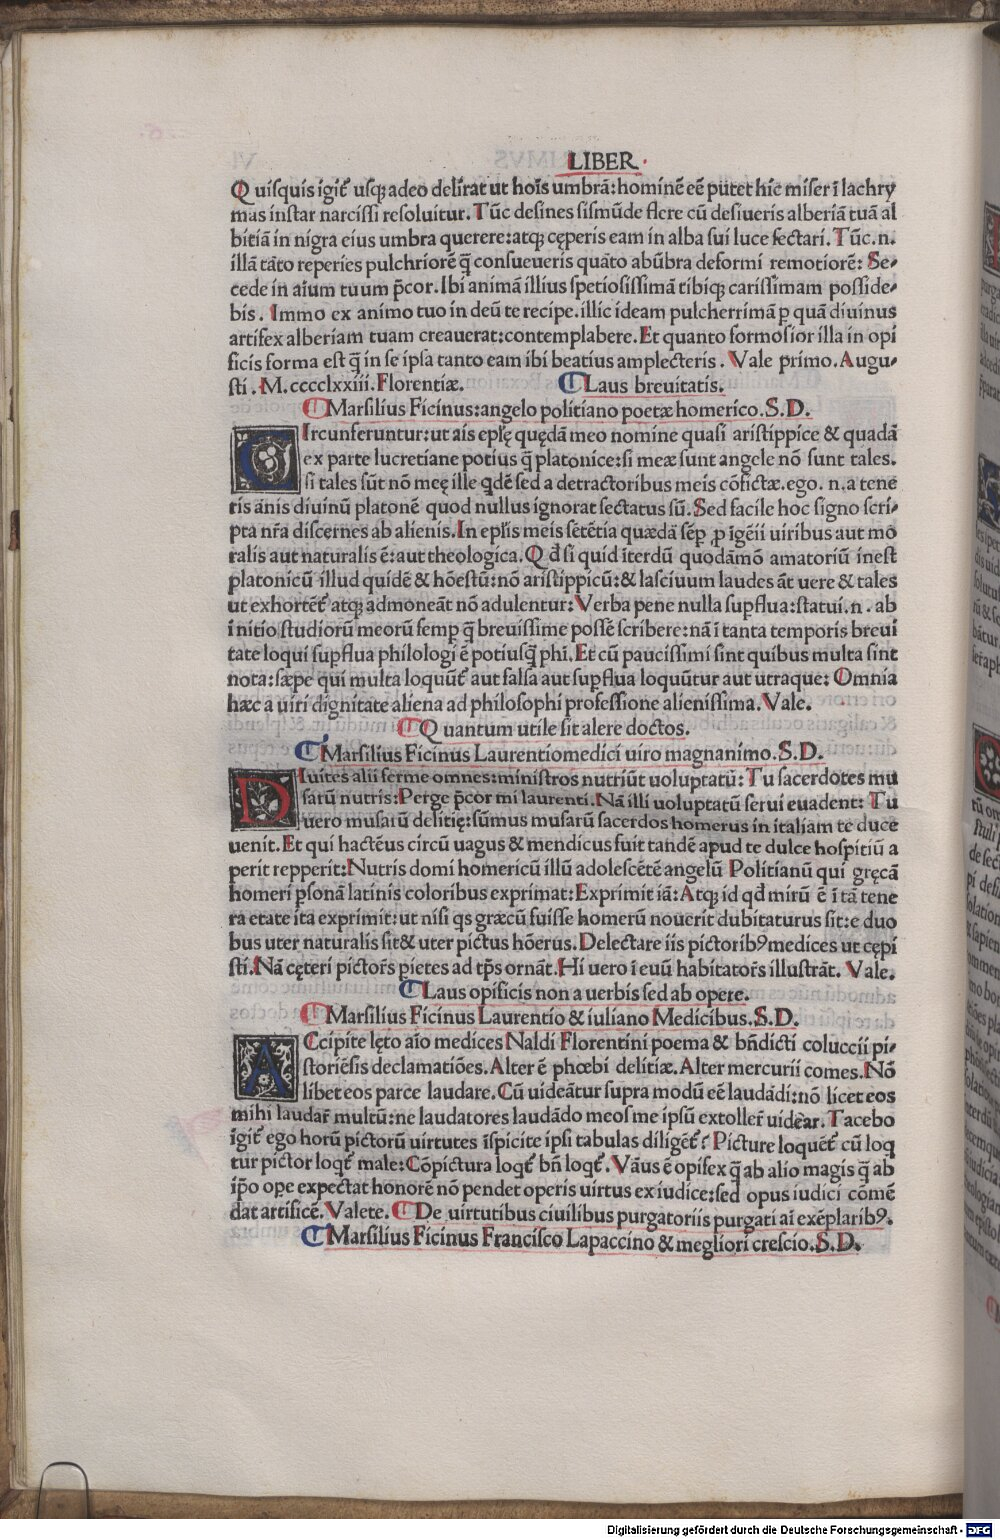 LIBER.
Quisquis igit᷑ usq; adeo delirat ut hoĩs umbrã: hominẽ eẽ putet hic miser ĩ lachry
mas instar narcissi resoluitur. Tũc desines sismũde flere cũ desiueris alberiã tuã al
bitiã in nigra eius umbra querere: atq; cęperis eam in alba sui luce sectari. Tũc .n.
illã tãto reperies pulchriorẽ q̃ consueueris quãto abũbra deformi remotiorẽ: Se-
cede in aĩum tuum p̃cor. Ibi animã illius spetiosissimã tibiq; carissimam posside-
bis. Immo ex animo tuo in deũ te recipe. illic ideam pulcherrimã p quã diuinus
artifex alberiam tuam creauerat: contemplabere. Et quanto formosior illa in opi
ficis forma est q̃ in se ipsa tanto eam ibi beatius amplecteris. Vale primo. Augu-
sti. M.cccclxxiii. Florentiæ. Laus breuitatis.
Marsilius Ficinus: angelo politiano poetæ homerico. S.D.
CIrcunferuntur: ut ais eplę quędã meo nomine quasi aristippice & quadã
ex parte lucretiane potius q̃ platonice: si meæ sunt angele nõ sunt tales.
si tales sũt nõ meę ille qdẽ sed a detractoribus meis cõfictæ. ego .n. a tene
ris ãnis diuinũ platonẽ quod nullus ignorat sectatus sũ. Sed facile hoc signo scri-
pta nr̃a discernes ab alienis. In eplis meis sẽtẽtia quædã sẽp p ĩgẽii uiribus aut mo
ralis aut naturalis ẽ: aut theologica. Qd̃ si quid ĩterdũ quodãmõ amatoriũ inest
platonicũ illud quidẽ & hõestũ: nõ aristippicũ: & lasciuum laudes ãt uere & tales
ut exhortẽt᷑ atq; admoneãt nõ adulentur: Verba pene nulla supflua: statui .n. ab
initio studiorũ meorũ semp q̃ breuissime possẽ scribere: nã ĩ tanta temporis breui
tate loqui supflua philologi ẽ potiusq̃ phi. Et cũ paucissimi sint quibus multa sint
nota: sæpe qui multa loquũt᷑ aut falsa aut supflua loquũtur aut utraque: Omnia
hæc a uiri dignitate aliena ad philosophi professione alienissima. Vale.
Quantum utile sit alere doctos.
Marsilius Ficinus Laurentiomedici uiro magnanimo. S.D.
DIuites alii ferme omnes: ministros nutriũt uoluptatũ: Tu sacerdotes mu
sarũ nutris: Perge p̃cor mi laurenti. Nã illi uoluptatũ serui euadent: Tu
uero musarũ delitię: sũmus musarũ sacerdos homerus in italiam te duce
uenit. Et qui hactẽus circũ uagus & mendicus fuit tandẽ apud te dulce hospitiũ a
perit repperit: Nutris domi homericũ illũ adolescẽtẽ angelũ Politianũ qui gręcã
homeri psonã latinis coloribus exprimat: Exprimit iã: Atq; id qd̃ mirũ ẽ ĩ tã tene
ra etate ita exprimit: ut nisi qs græcũ fuisse homerũ nouerit dubitaturus sit: e duo
bus uter naturalis sit & uter pictus hõerus. Delectare iis pictorib9 medices ut cępi
sti. Nã cęteri pictor̃s pietes ad tp̃s ornãt. Hi uero ĩ euũ habitator̃s illustrãt. Vale.
Laus opificis non a uerbis sed ab opere.
Marsilius Ficinus Laurentio & iuliano Medicibus. S.D.
ACcipite lęto aĩo medices Naldi Florentini poema & bñdicti coluccii pi-
storiẽsis declamatiões. Alter ẽ phœbi delitiæ. Alter mercurii comes. Nõ
libet eos parce laudare. Cũ uideãtur supra modũ eẽ laudãdi: nõ licet eos
mihi laudar̃ multũ: ne laudatores laudãdo meos me ipsũ extoller̃ uidear. Tacebo
igit᷑ ego horũ pictorũ uirtutes ĩspicite ipsi tabulas diligẽt᷑: Picture loquẽt᷑ cũ loq
tur pictor loqt᷑ male: Cõpictura loqt᷑ bñ loqt᷑. Vãus ẽ opifex q̃ ab alio magis q̃ ab
ip̃o ope expectat honorẽ nõ pendet operis uirtus ex iudice: sed opus iudici cõmẽ
dat artificẽ. Valete. De uirtutibus ciuilibus purgatoriis purgati aĩ exẽplarib9.
Marsilius Ficinus Francisco Lapaccino & megliori crescio. S.D.
Digitalisierung gefördert durch die Deutsche Forschungsgemeinschaft - DFG